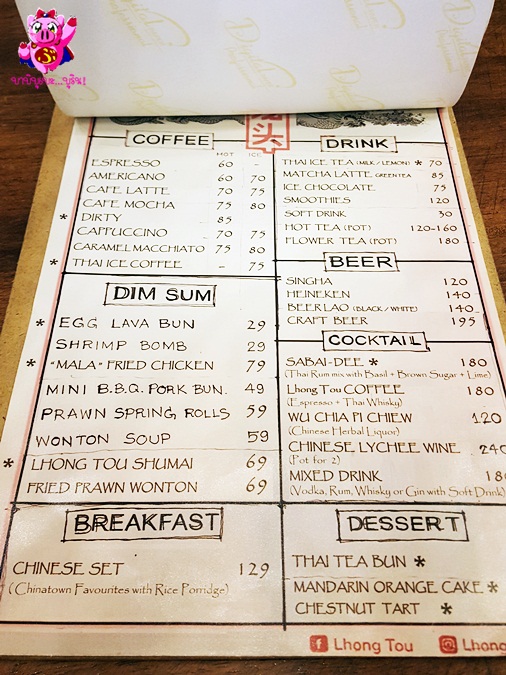 บาบีจูมเหะ...บูริน!
头
COFFEE
HOT ICE
ESPRESSO 60 -
AMERICANO 60 70
CAFE LATTE 70 75
CAFE MOCHA 75 80
* DIRTY 85
CAPPUCCINO 70 75
CARAMEL MACCHIATO 75 80
* THAI ICE COFFEE - 75
DIM SUM
* EGG LAVA BUN 29
SHRIMP BOMB 29
* "MALA" FRIED CHICKEN 79
MINI B.B.Q. PORK BUN. 49
PRAWN SPRING ROLLS 59
WONTON SOUP 59
* LHONG TOU SHUMAI 69
FRIED PRAWN WONTON 69
BREAKFAST
CHINESE SET 129
(Chinatown Favourites with Rice Porridge)
DRINK
THAI ICE TEA (MILK / LEMON) * 70
MATCHA LATTE GREEN TEA 85
ICE CHOCOLATE 75
SMOOTHIES 120
SOFT DRINK 30
HOT TEA (POT) 120-160
FLOWER TEA (POT) 180
BEER
SINGHA 120
HEINEKEN 140
BEERLAO (BLACK / WHITE) 140
CRAFT BEER 195
COCKTAIL
SABAI-DEE * 180
(Thai Rum mix with Basil + Brown Sugar + Lime)
Lhong Tou COFFEE 180
(Espresso + Thai Whisky)
WU CHIA PI CHIEW 120
(Chinese Herbal Liquor)
CHINESE LYCHEE WINE 240
(Pot for 2)
MIXED DRINK 180
(Vodka, Rum, Whisky or Gin with Soft Drink)
DESSERT
THAI TEA BUN *
MANDARIN ORANGE CAKE *
CHESTNUT TART *
Lhong Tou Lhong